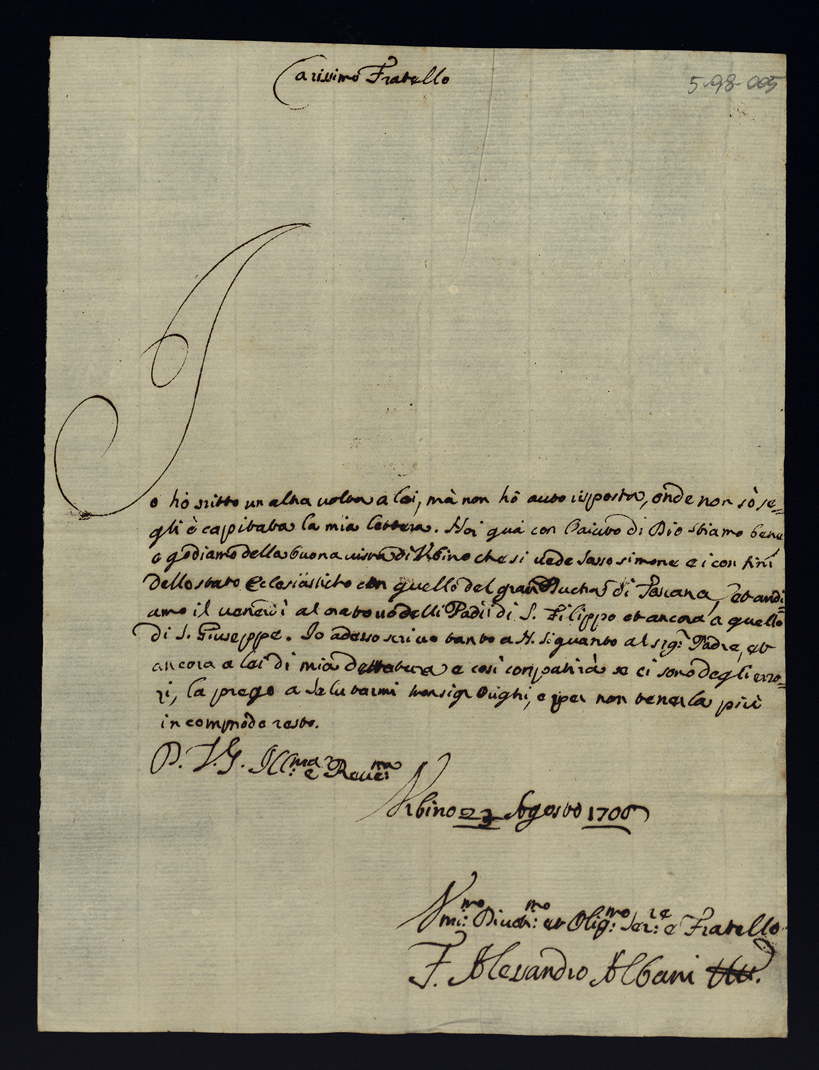 Carissimo Fratello
5-98-005
Io hò scritto un altra volta a lei, mà non hò auto risposta, onde non sò se=
gli è capitata la mia lettera. Noi quà con l'aiuto di Dio stiamo bene
e godiamo della buona vista di Urbino che si vede Sasso simone e i confini
dello stato Eclesiasticho con quello del gran Ducha di Toscana, et andi=
amo il venerdì al oratorio delli Padri di S. Filippo et ancora a quello
di S. Giuseppe. Io adesso scrivo tanto a N. S. quanto al sig.r Padre, et
ancora a lei di mia dettatura e così conpatirà se ci sono degli erro=
ri, la prego a salutarmi Monsigr Orighi, e per non tenerla più
in commodo resto.
D. V. S. Ill.ma e Reve.ma
Urbino 23 Agosto 1706
Umi.mo Divot.mo et Oblig.mo Ser.re e Fratello
F. Alesandro Albani